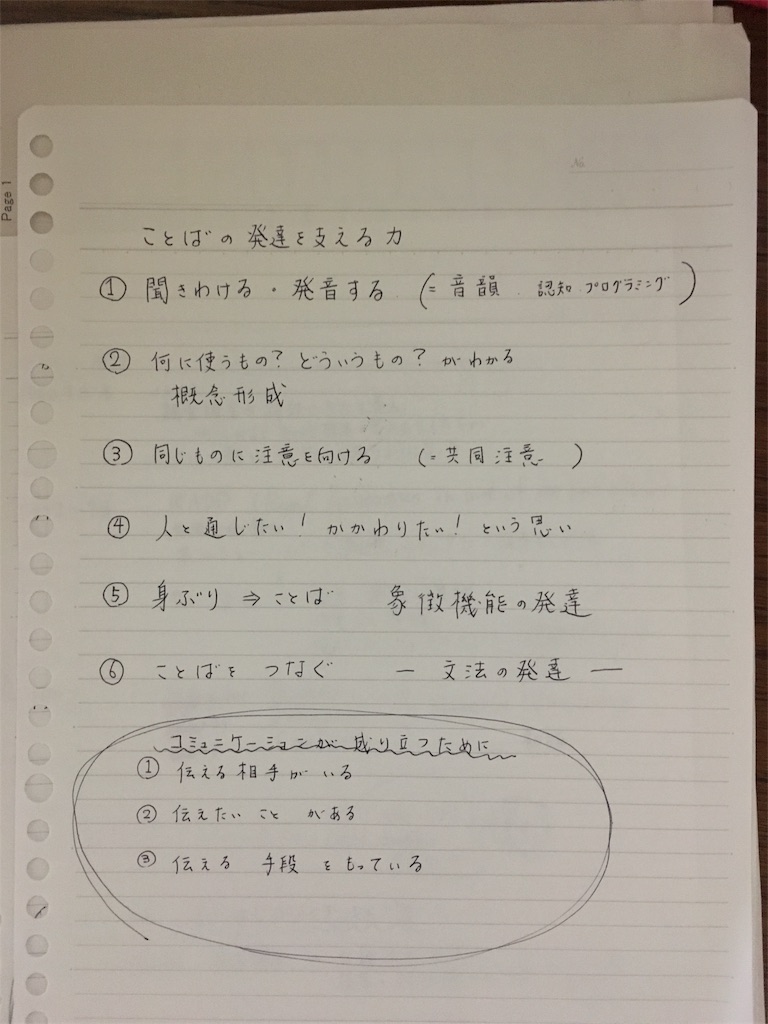 Page 1
No.
ことばの発達を支える力
① 聞きわける・発音する (= 音韻 . 認知 . プログラミング)
② 何に使うもの?どういうもの?がわかる
概念形成
③ 同じものに注意を向ける (= 共同注意 )
④ 人と通じたい!かかわりたい!という思い
⑤ 身ぶり ⇒ ことば 象徴機能の発達
⑥ ことばを つなぐ ― 文法の発達 ―
コミュニケーションが成り立つために
① 伝える相手がいる
② 伝えたいこと がある
③ 伝える 手段 をもっている